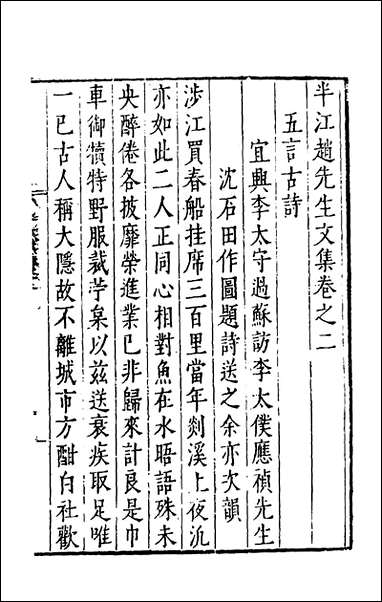 半江趙先生文集卷之二
五言古詩
宜興李太守過蘇訪李太僕應禎先生
沈石田作圖題詩送之余亦次韻
涉江買春船挂席三百里當年剡溪上夜沉
亦如此二人正同心相對魚在水晤語殊未
央醉倦各披靡榮進業已非歸來計良是巾
車御犢特野服裁芋臬以兹送衰疾取足唯
一已古人稱大隱故不離城市方酣白社歡